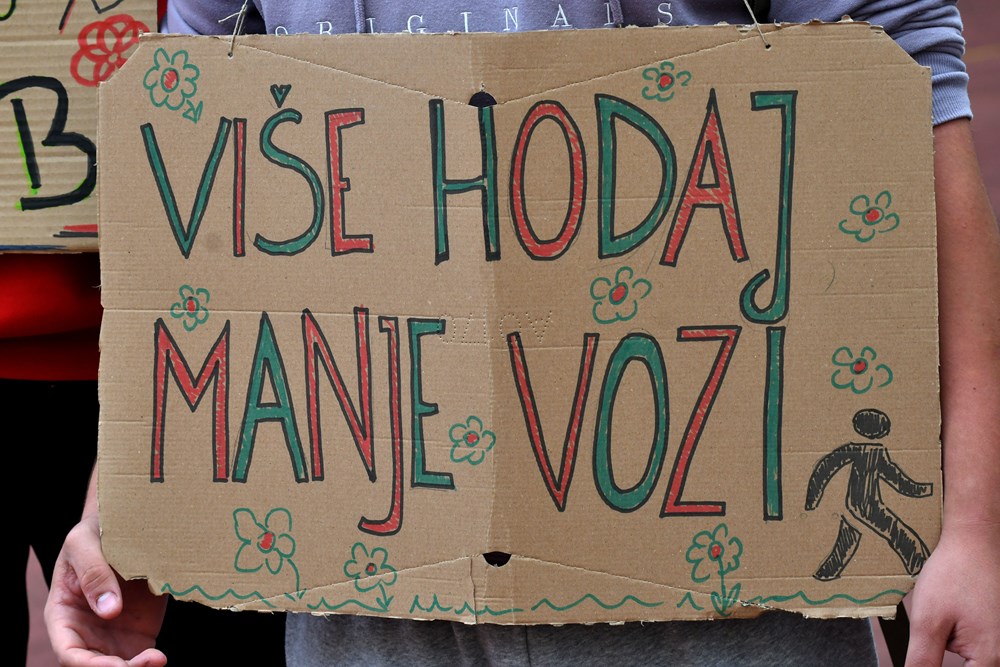 ORIGINALS
B
VIŠE HODAJ
MANJE VOZI